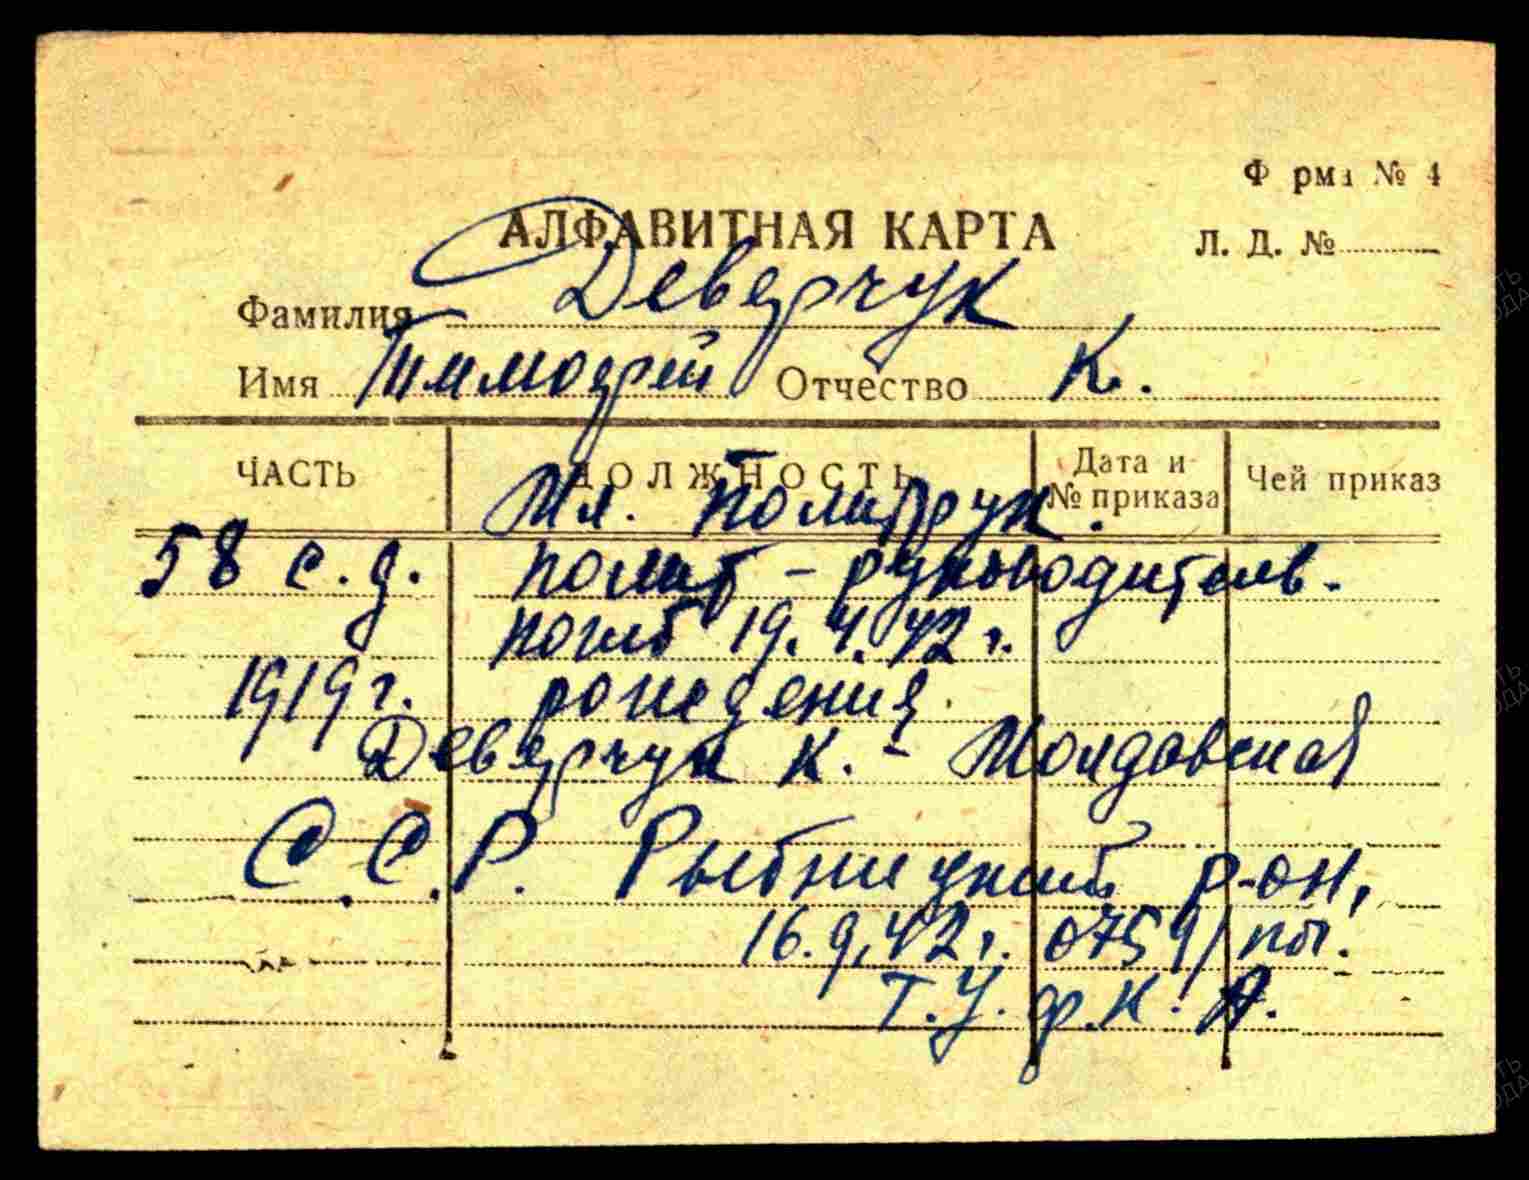 Форма № 4
АЛФАВИТНАЯ КАРТА
Л. Д. №
Фамилия Деверчук
Имя Тимофей Отчество К.
ЧАСТЬ ДОЛЖНОСТЬ Дата и № приказа Чей приказ
Мл. Политрук.
58 с.д. полит-руководитель.
погиб 19.4.42 г.
1919 г. рождения.
Деверчук К. - Молдавская
С.С.Р. Рыбницкий р-он,
16.9.42 г. 0759/пог.
Г.У.ф.К.А.